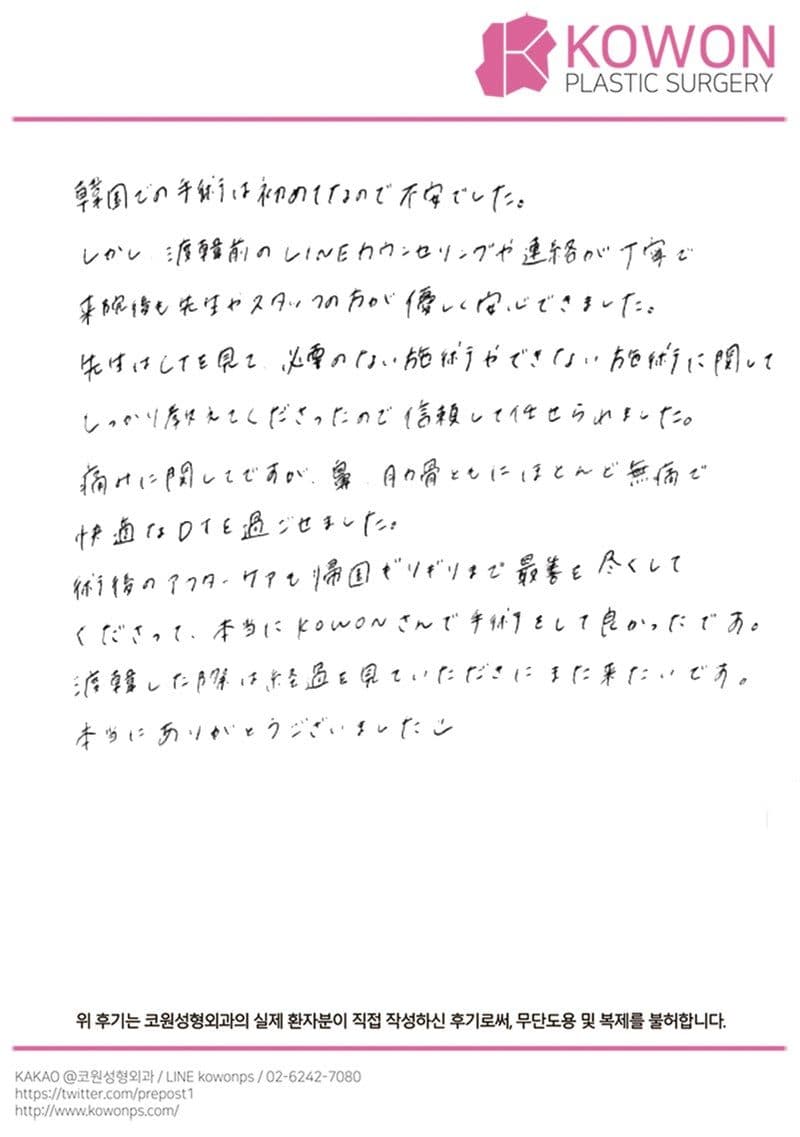 KOWON
PLASTIC SURGERY
韓国での手術は初めてなので不安でした。
しかし、渡韓前のLINEカウンセリングや連絡が丁寧で
来院後も先生やスタッフの方が優しく安心できました。
先生はCTを見て、必要のない施術やできない施術に関して
しっかり教えてくださったので信頼して任せられました。
痛みに関してですが、鼻、肋骨ともにほとんど無痛で
快適なDTを過ごせました。
術後のアフターケアも帰国ギリギリまで最善を尽くして
くださって、本当にKOWONさんで手術をして良かったです。
渡韓した際は経過を見ていただきにまた来たいです。
本当にありがとうございました
위 후기는 코원성형외과의 실제 환자분이 직접 작성하신 후기로써, 무단도용 및 복제를 불허합니다.
KAKAO @코원성형외과 / LINE kowonps / 02-6242-7080
https://twitter.com/prepost1
http://www.kowonps.com/